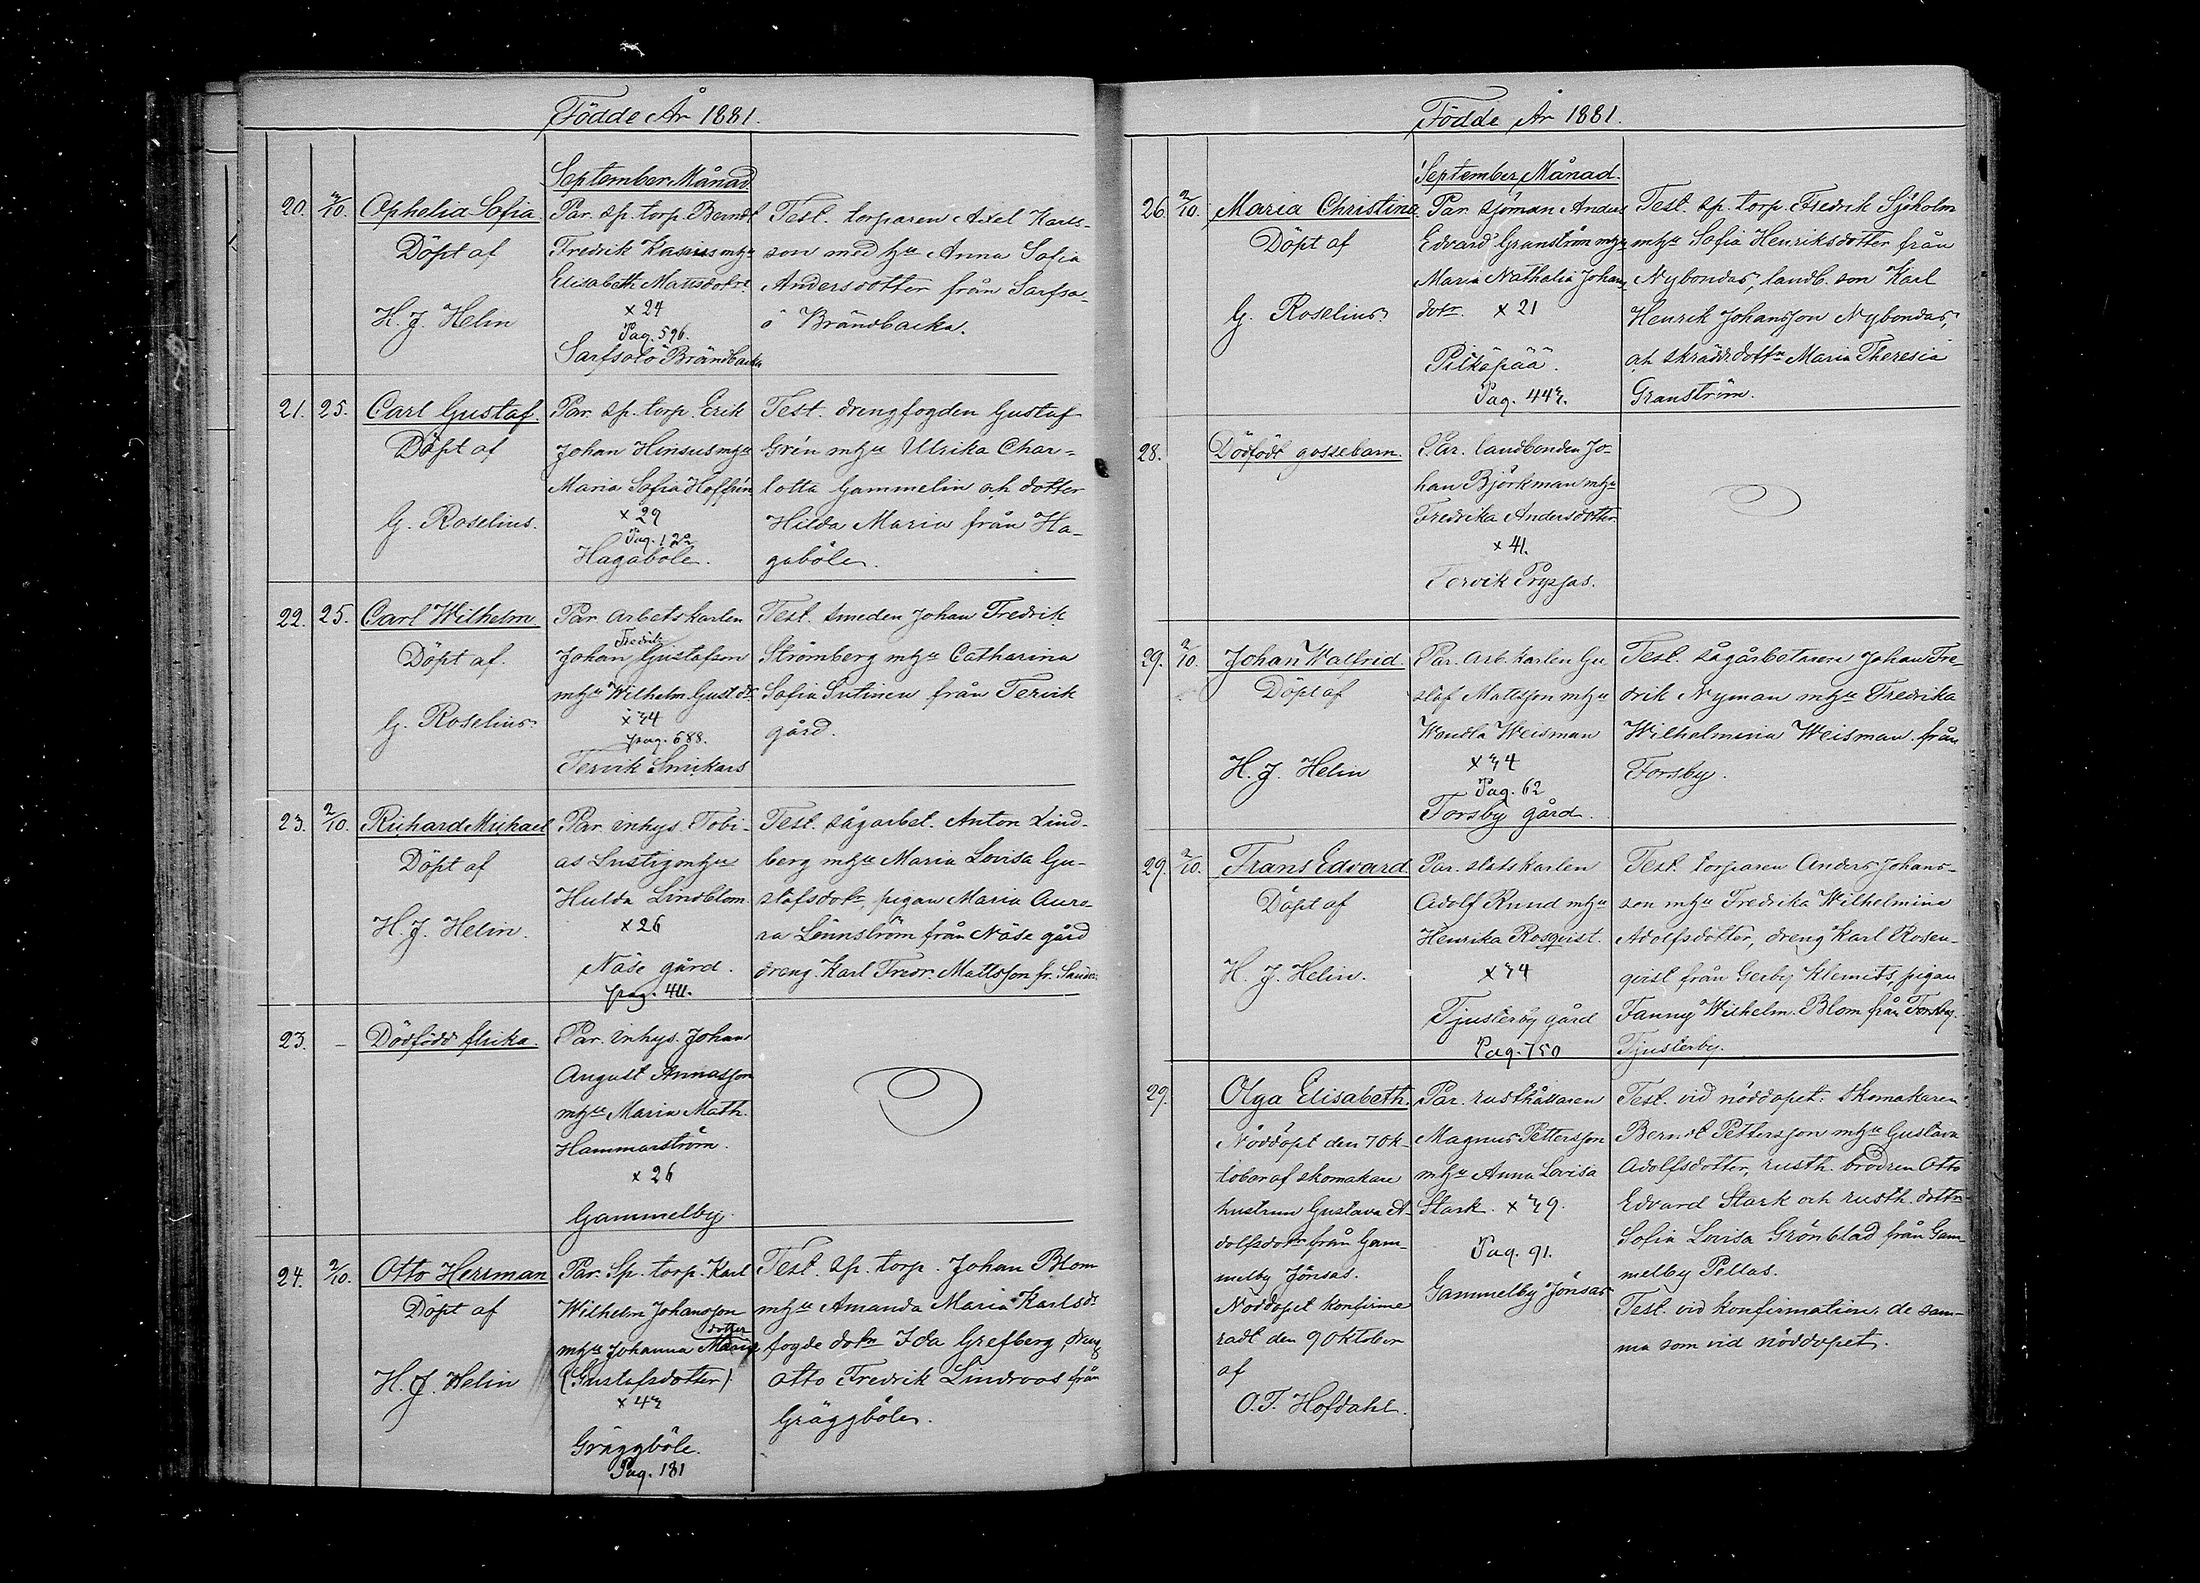 Födde År 1881.
September Månad.
20. 2/10. Ophelia Sofia
Döpt af
H. J. Helin
Par. sp. torp. Berndt
Fredrik Kasius mhu
Elisabeth Mattsdotr
x 24
Pag. 596.
Sarfsalö Brändbacka
Test. torparen Axel Karls-
son med hu Anna Sofia
Andersdotter från Sarfsa-
ö Brändbacka.
21. 25. Carl Gustaf.
Döpt af
G. Roselius.
Par. sp. torp. Erik
Johan Hinsus mhu
Maria Sofia Hoffrén
x 29
Pag. 122
Hagaböle.
Test. drengfogden Gustaf
Grén mhu Ulrika Char-
lotta Gammelin och dotter
Hilda Maria från Ha-
gaböle.
22. 25. Carl Wilhelm
Döpt af.
G. Roselius
Par. arbetskarlen
Fredrik
Johan Gustafson
mhu Wilhelm. Gustdr
x 34
pag. 688.
Tervik Smikars
Test. smeden Johan Fredrik
Strömberg mhu Catharina
Sofia Sutinen från Tervik
gård.
23. 2/10. Richard Mikael
Döpt af
H. J. Helin.
Par. inhys. Tobi-
as Lustig mhu
Hulda Lindblom
x 26
Näse gård.
pag. 411.
Test. sågarbet. Anton Lind-
berg mhu Maria Lovisa Gu-
stafsdotr, pigan Maria Auro-
ra Lönnström från Näse gård
dreng. Karl Fredr. Mattsson fr.
23. - Dödfödd flicka.
Par. inhys. Johan
August Annasson
mhu Maria Math.
Hammarström.
x 26
Gammelby.
24. 2/10. Otto Herman
Döpt af
H. J. Helin
Par. Sp. torp. Karl
Wilhelm Johansson
dotter
mhu Johanna Maria
(Gustafsdotter)
x 43
Gräggböle.
Pag. 181
Test. sp. torp. Johan Blom
mhu Amanda Maria Karlsdr
fogde dotr Ida Grefberg, dreng
Otto Fredrik Lindroos från
Gräggböle.
Födde År 1881.
September Månad.
26 2/10. Maria Christina
Döpt af
G. Roselius
Par. sjöman Anders
Edvard Granström mhu
Maria Nathalia Johans
dotr. x 21
Pitkäpää.
Pag. 443.
Test. sp. torp. Fredrik Sjöholm
mhu Sofia Henriksdotter från
Nybondas, landb. son Karl
Henrik Johansson Nybondas,
och skrädd. dottn Maria Theresia
Granström.
28. Dödfödt gossebarn.
Par. landbonden Jo-
han Björkman mhu
Fredrika Andersdotter
x 41.
Tervik Prysjas.
29. 2/10. Johan Walfrid.
Döpt af
H. J. Helin
Par. Arb. karlen Gu
staf Mattsson mhu
Wendla Weisman
x 34
Pag. 62
Forsby gård.
Test. sågarbetaren Johan Fre-
drik Nyman mhu Fredrika
Wilhelmina Weisman från
Forsby.
29. 2/10. Frans Edvard
Döpt af
H. J. Helin.
Par. statskarlen
Adolf Rund mhu
Henrika Rosqvist.
x 34
Tjusterby gård
Pag. 750
Test. torparen Anders Johans-
son mhu Fredrika Wilhelmina
Adolfsdotter, dreng Karl Rosen-
qvist från Gerby Klemets, pigan
Fanny Wilhelm. Blom från Forsby.
Tjusterby.
29. Olga Elisabeth.
Nöddöpt den 7 Ok-
tober af skomakare
hustrun Gustava A-
dolfsdotr från Gam-
melby Jönsas.
Nöddopet konfirme
radt den 9 Oktober
af
O. T. Hofdahl.
Par. rusthållaren
Magnus Pettersson
mhu Anna Lovisa
Stark. x 39.
Pag. 91.
Gammelby Jönsas
Test. vid nöddopet: skomakaren
Berndt Pettersson mhu Gustava
Adolfsdotter, rusth. brodren Otto
Edvard Stark och rusth. dottn
Sofia Lovisa Grönblad från Gam
melby Pellas.
Test. vid konfirmation. de sam-
ma som vid nöddopet.